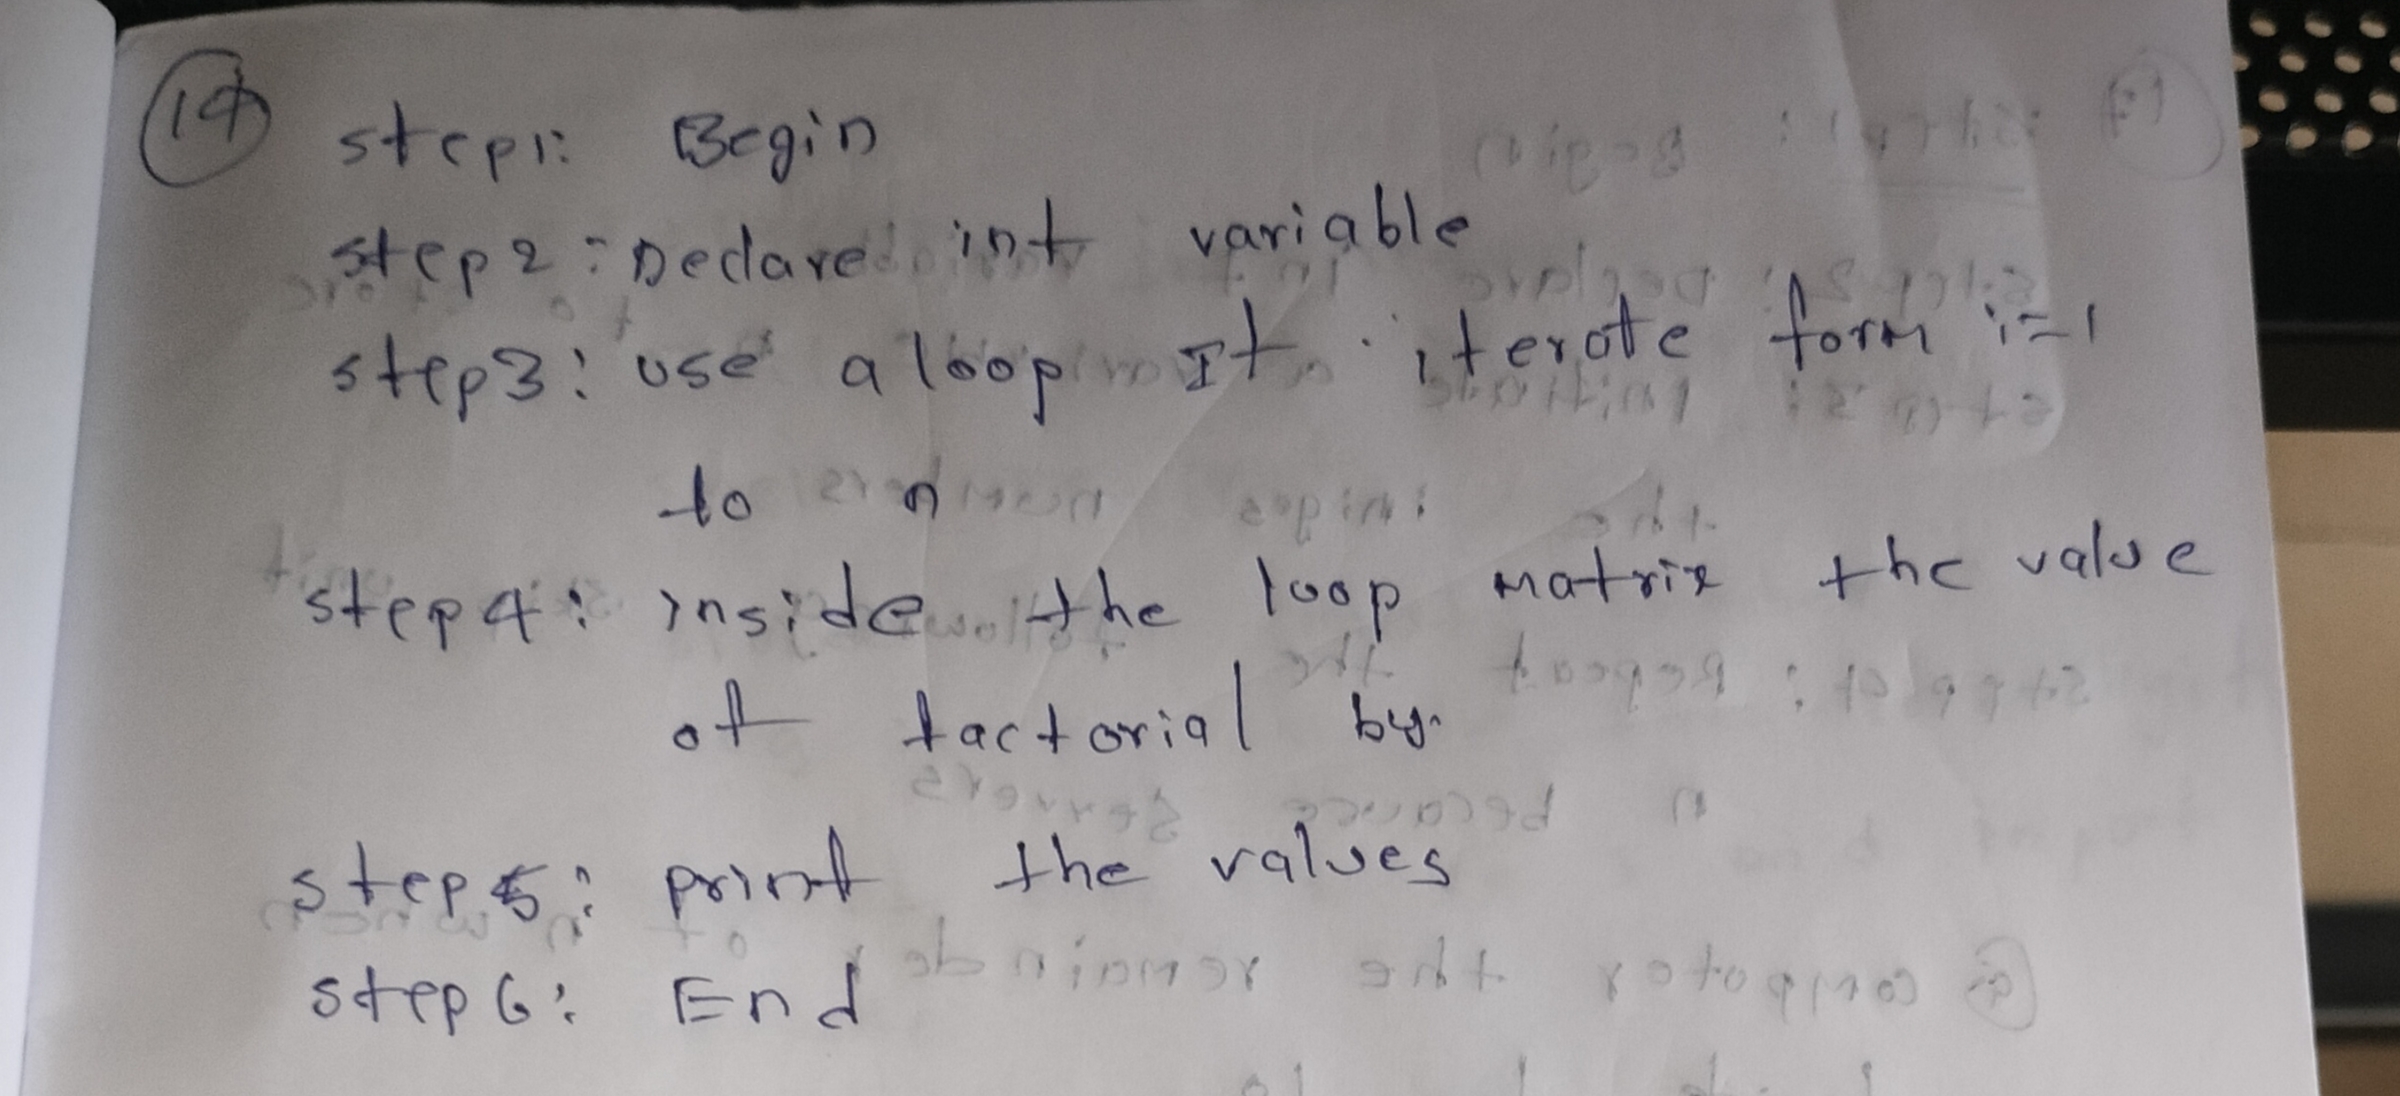 14
step1: Begin
step2: Declare int variable
step3: use a loop It iterate form i=1
to n
step4: inside the loop matrix the value
of factorial by.
step5: print the values
step6: End